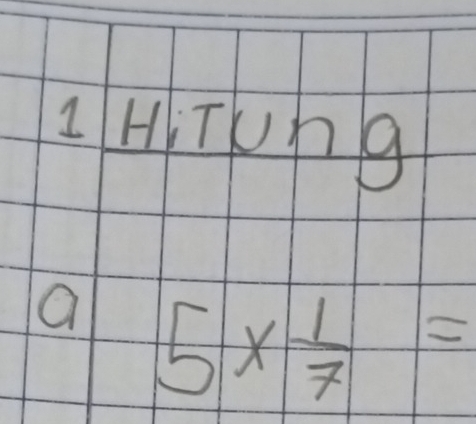 1 HiTUng
a 5 × 1/7 =